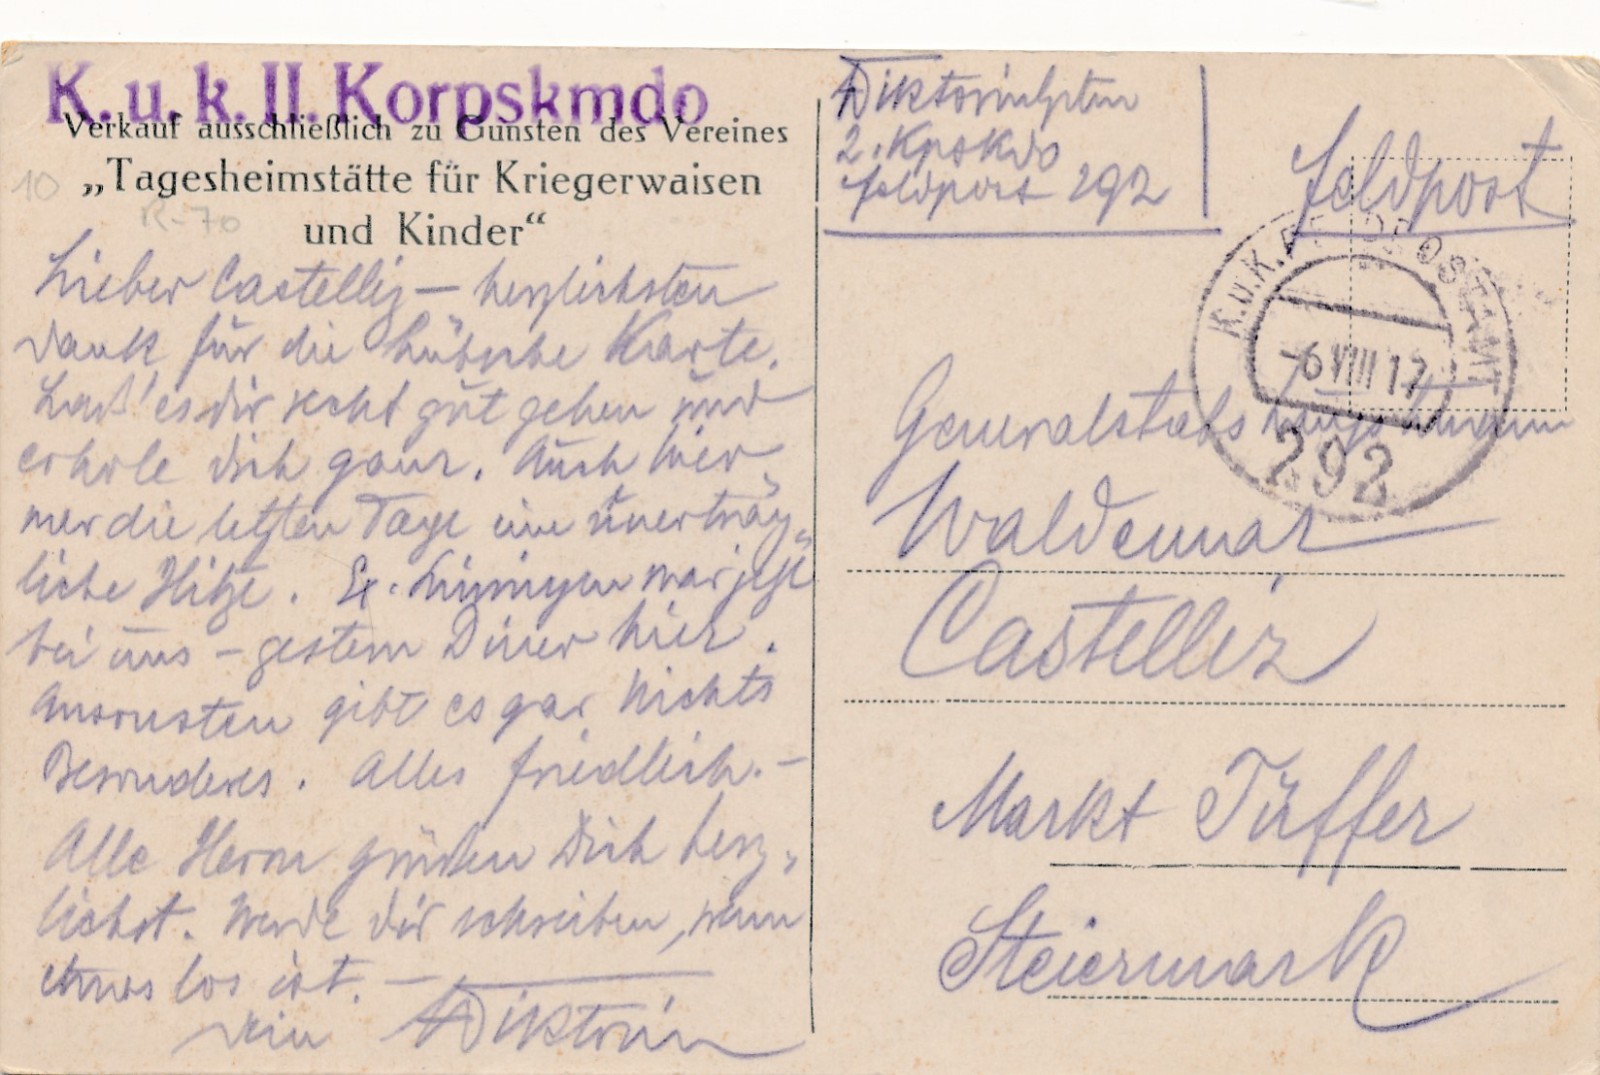 K.u.k. II. Korpskmdo
Verkauf ausschließlich zu Gunsten des Vereines
„Tagesheimstätte für Kriegerwaisen
und Kinder“
10
R-70
Lieber Castelliz – herzlichsten
Dank für die hübsche Karte.
Laß' es dir recht gut gehen und
erhole dich ganz. Auch hier
die letzten Tage eine unerträg-
liche Hitze. Ex. war jetzt
bei uns – gestern Diner hier.
Ansonsten gibt es gar nichts
Besonderes. Alles friedlich. –
Alle Herrn grüßen Dich herz-
lichst. Werde dir schreiben, wenn
etwas los ist. –
Dein Wiktorin
2. Kpskdo
Feldpost 292
Feldpost
K.u.K. FELDPOSTAMT
-6 VIII 17
292
Generalstabshauptmann
Waldemar
Castelliz
Markt Tüffer
Steiermark